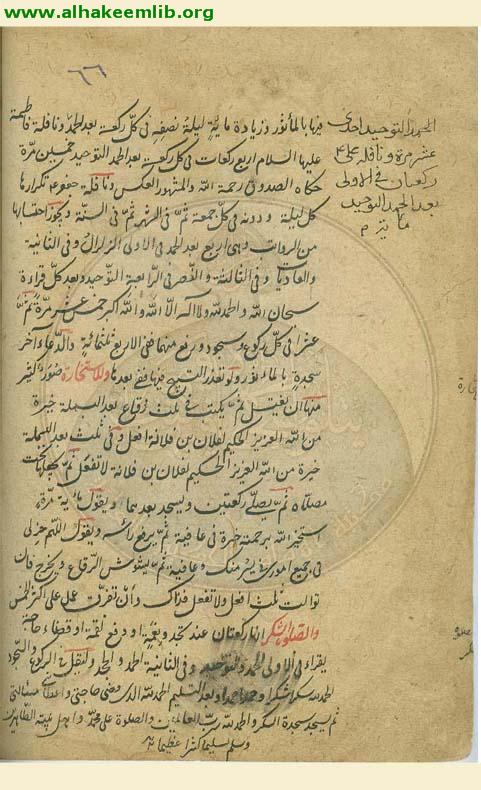 www.alhakeemlib.org
٦٦
فيها بالمأثور وزيادة مائة ليلة نصفه في كل ركعة بعد الحمد ونافلة فاطمة
عليها السلام اربع ركعات في كل ركعة بعد الحمد التوحيد خمسين مرة
حكاه الصدوق رحمة الله والمشهور العكس ونافلة جعفر ع تكرارها
كل ليلة ودونه في كل جمعة ثم في الشهر ثم في السنة ويجوز احتسابها
من الرواتب وهي اربع بعد الحمد في الاولى الزلزال وفي الثانية
والعاديات وفي الثالثة والنصر في الرابعة التوحيد وبعد كل قراءة
سبحان الله والحمد لله ولا اله الا الله والله اكبر خمس عشر مرة ثم
عشرا في كل ركوع وسجود ورفع منهما ففي الاربع ثلثمائة والدعاء آخر
سجدة بالمأثور ولو تعذر التسبيح فيها قضى بعدها وللاستخارة صور كثير
منها ان يغتسل ثم يكتب في ثلث رقاع بعد البسملة خيرة
من الله العزيز الحكيم لفلان بن فلانة افعل وفي ثلث بعد البسملة
خيرة من الله العزيز الحكيم لفلان بن فلانة لا تفعل ثم يجعلها تحت
مصلاه ثم يصلي ركعتين ويسجد بعدهما ويقول مائة مرة
استخير الله برحمته خيرة في عافية ثم يرفع رأسه ويقول اللهم خر لي
في جميع اموري في يسر منك وعافية ثم يشوش الرقاع ويخرج فان
توالت ثلث افعل ولا تفعل فذاك وان تفرقت عمل على اكثر الخمس
والصلوة الشكر انها ركعتان عند تجدد نعمة او دفع نقمة او قضاء حاجة
يقراء في الاولى الحمد والتوحيد وفي الثانية الحمد والجحد وليقل في الركوع والسجود
الحمد لله شكرا شكرا وحمدا حمدا وبعد التسليم الحمد لله الذي قضى حاجتي واعطاني مسئالتي
ثم يسجد سجدة الشكر والحمد لله رب العالمين والصلوة على محمد واهل بيته الطاهرين
وسلم تسليما كثيرا عظيما
الحمد والتوحيد احدى
عشر مرة ونافلة علي ع
ركعتان في الاولى
بعد الحمد التوحيد